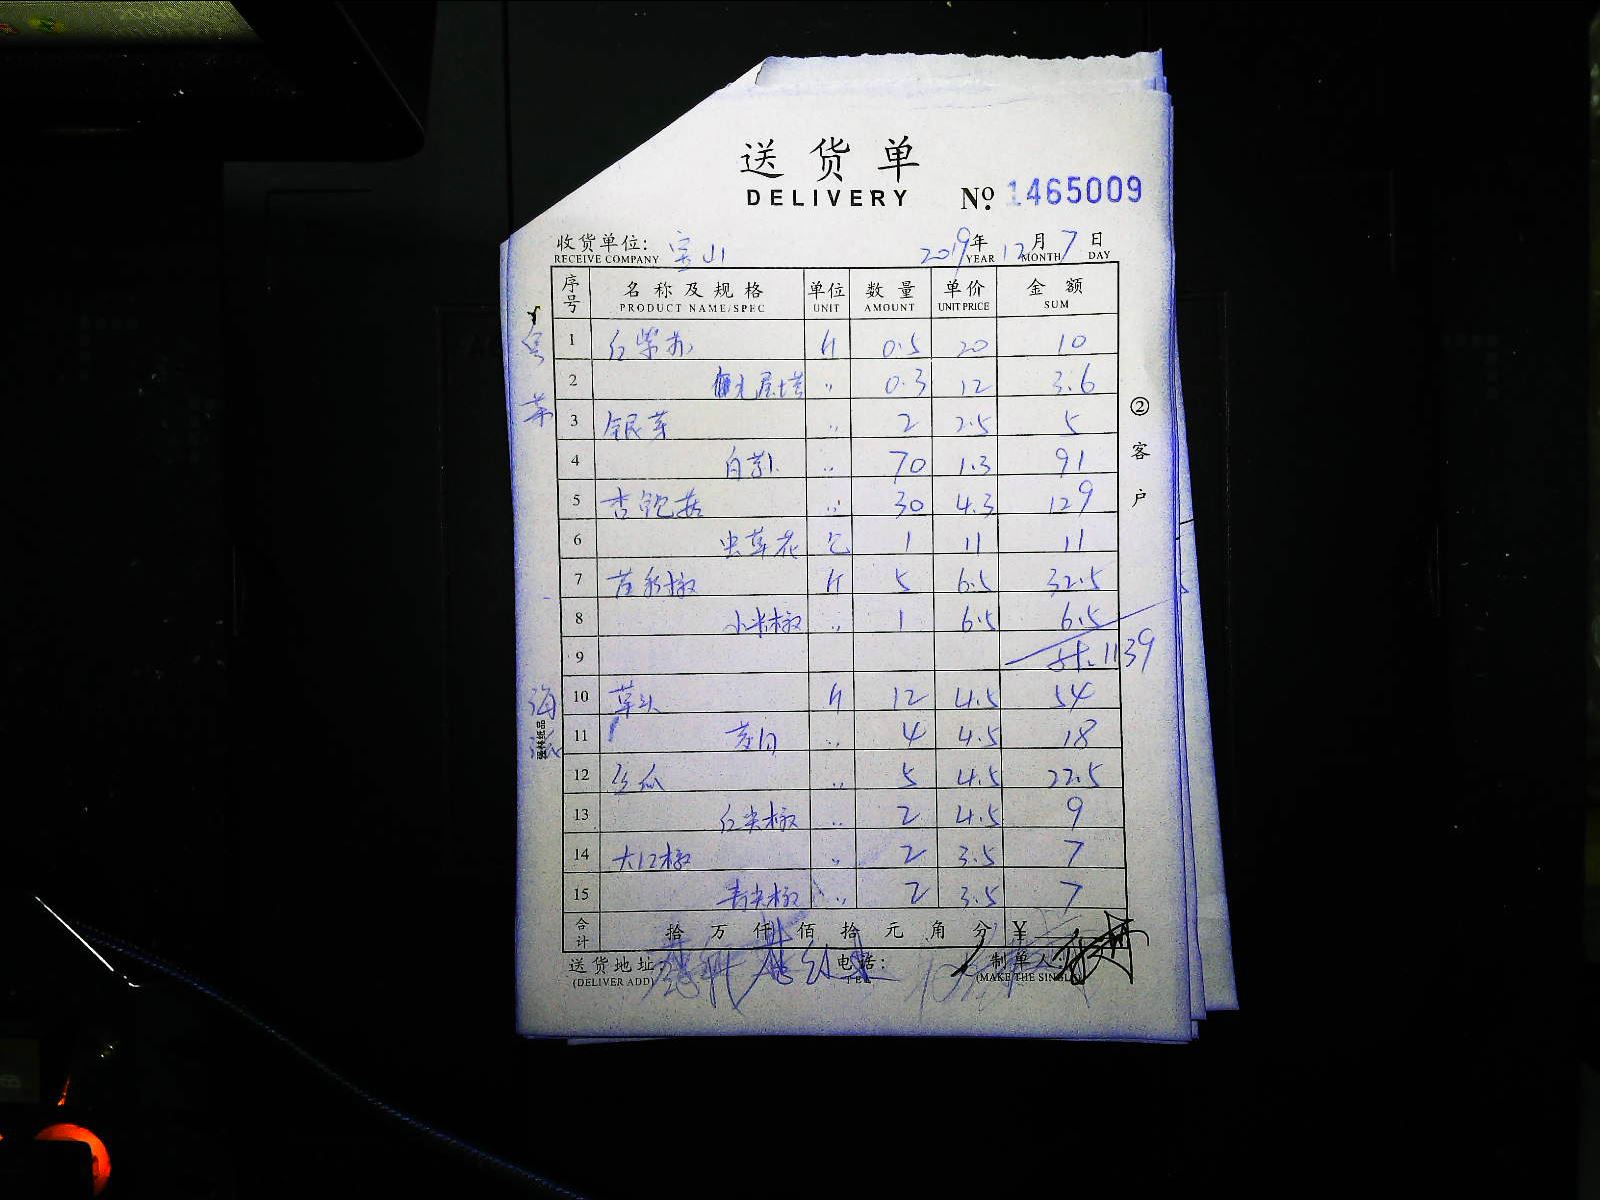 送货单
DELIVERY
№ 1465009
收货单位: 宝山 2019年12月7日
RECEIVE COMPANY YEAR MONTH DAY
序号 名称及规格 单位 数量 单价 金额
PRODUCT NAME/SPEC UNIT AMOUNT UNIT PRICE SUM
1 红紫苏 斤 0.5 20 10
2 〃 0.3 12 3.6
3 银芽 〃 2 2.5 5
4 〃 70 1.3 91
5 杏鲍菇 〃 30 4.3 129
6 虫草花 包 1 11 11
7 斤 5 6.5 32.5
8 小米椒 〃 1 6.5 6.5
9 1139
10 草头 斤 12 4.5 54
11 茭白 〃 4 4.5 18
12 丝瓜 〃 5 4.5 22.5
13 红尖椒 〃 2 4.5 9
14 大红椒 〃 2 3.5 7
15 青尖椒 〃 2 3.5 7
合计 拾 万 仟 佰 拾 元 角 分 ¥
送货地址: 电话: 制单人:
(DELIVER ADD) TEL (MAKE THE SINGLE)
②客户